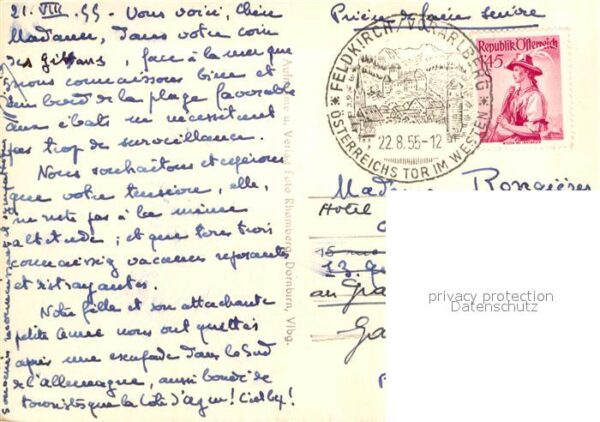 21. VIII. 55 - Vous voici, chère
Madame, dans votre coin
des Gittans, face à la mer que
nous connaissons bien et
au bord de la plage favorable
aux ébats ne nécessitant
pas trop de surveillance.
Nous souhaitons et espérons
que votre tension, elle,
ne reste pas à la même
altitude ; et que tous trois
connaissiez vacances reposantes
et distrayantes.
Notre fille et son attachante
petite amie nous ont quittés
après une escapade dans le Sud
de l'allemagne, aussi bondé de
touristes que la Côte d'azur !
reconnaissants et sympathiques
Aufnahme u. Verlag Foto Rhomberg, Dornbirn, Vlbg.
Prière de faire suivre
FELDKIRCH / VORARLBERG
22.8.55-12
ÖSTERREICHS TOR IM WESTEN
Republik Österreich
1.45
Madame
Hotel
15
13
au Gra
Ga
privacy protection
Datenschutz